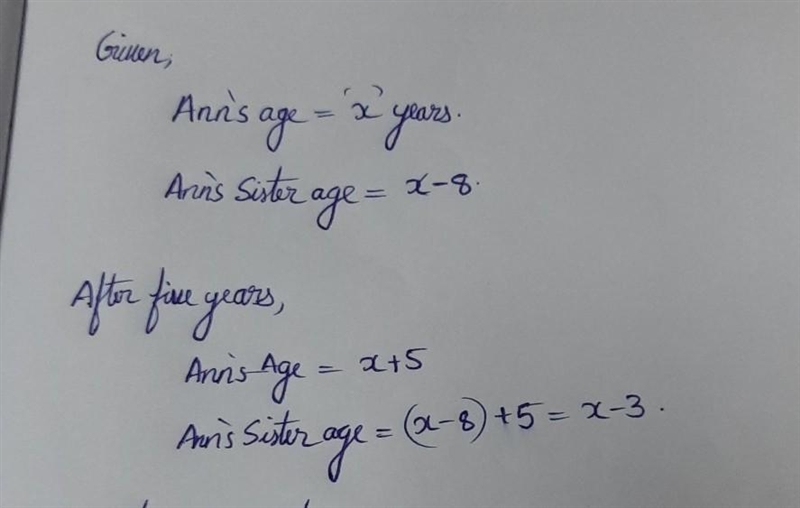 Given,
Ann's age = 'x' years.
Ann's Sister age = x-8.
After five years,
Ann's Age = x+5
Ann's Sister age = (x-8)+5 = x-3.